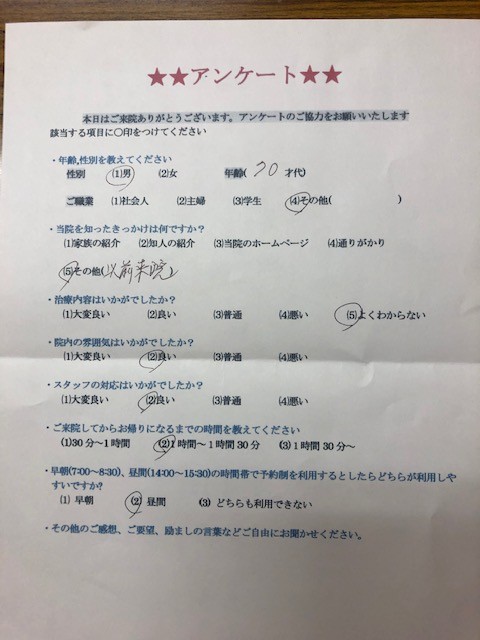 ★★アンケート★★
本日はご来院ありがとうございます。アンケートのご協力をお願いいたします
該当する項目に○印をつけてください
・年齢,性別を教えてください
性別 (1)男 (2)女 年齢( 70 才代)
ご職業 (1)社会人 (2)主婦 (3)学生 (4)その他( )
・当院を知ったきっかけは何ですか?
(1)家族の紹介 (2)知人の紹介 (3)当院のホームページ (4)通りがかり
(5)その他(以前来院)
・治療内容はいかがでしたか?
(1)大変良い (2)良い (3)普通 (4)悪い (5)よくわからない
・院内の雰囲気はいかがでしたか?
(1)大変良い (2)良い (3)普通 (4)悪い
・スタッフの対応はいかがでしたか?
(1)大変良い (2)良い (3)普通 (4)悪い
・ご来院してからお帰りになるまでの時間を教えてください
(1)30分～1時間 (2)1時間～1時間30分 (3)1時間30分～
・早朝(7:00～8:30)、昼間(14:00～15:30)の時間帯で予約制を利用するとしたらどちらが利用しや
すいですか?
(1) 早朝 (2) 昼間 (3) どちらも利用できない
・その他のご感想、ご要望、励ましの言葉などご自由にお聞かせください。